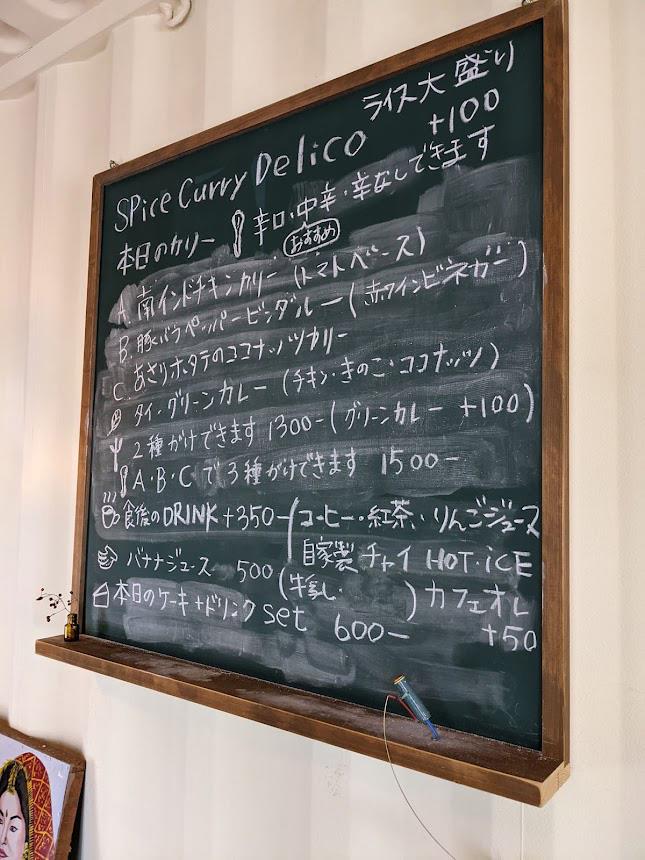 ライス大盛り
+100
SPice Curry Delico
本日のカリー 辛口・中辛・辛なしできます
おすすめ
A. 南インドチキンカリー (トマトベース)
B. 豚バラペッパービンダルー (赤ワインビネガー)
C. あさりホタテのココナッツカリー
タイ・グリーンカレー (チキン・きのこ・ココナッツ)
2種がけできます 1300- (グリーンカレー +100)
A・B・Cで3種がけできます 1500-
食後のDRINK +350- コーヒー・紅茶・りんごジュース
自家製チャイ HOT・iCE
バナナジュース 500 (牛乳・ ) カフェオレ
+50
本日のケーキ+ドリンク set 600-